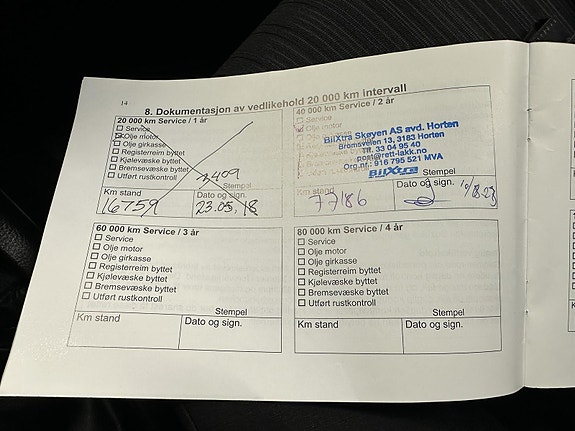 14
8. Dokumentasjon av vedlikehold 20 000 km intervall
20 000 km Service / 1 år
Service
Olje motor
Olje girkasse
Registerreim byttet
Kjølevæske byttet
Bremsevæske byttet
Utført rustkontroll
Stempel
Km stand
16759
Dato og sign.
23.05.18
40 000 km Service / 2 år
Service
Olje motor
BilXtra Skøyen AS avd. Horten
Bromsveien 13, 3183 Horten
Tlf. 33 04 95 40
post@rett-lakk.no
Org.nr.: 916 795 521 MVA
BilXtra
Stempel
Km stand
77186
Dato og sign.
60 000 km Service / 3 år
Service
Olje motor
Olje girkasse
Registerreim byttet
Kjølevæske byttet
Bremsevæske byttet
Utført rustkontroll
Stempel
Km stand
Dato og sign.
80 000 km Service / 4 år
Service
Olje motor
Olje girkasse
Registerreim byttet
Kjølevæske byttet
Bremsevæske byttet
Utført rustkontroll
Stempel
Km stand
Dato og sign.